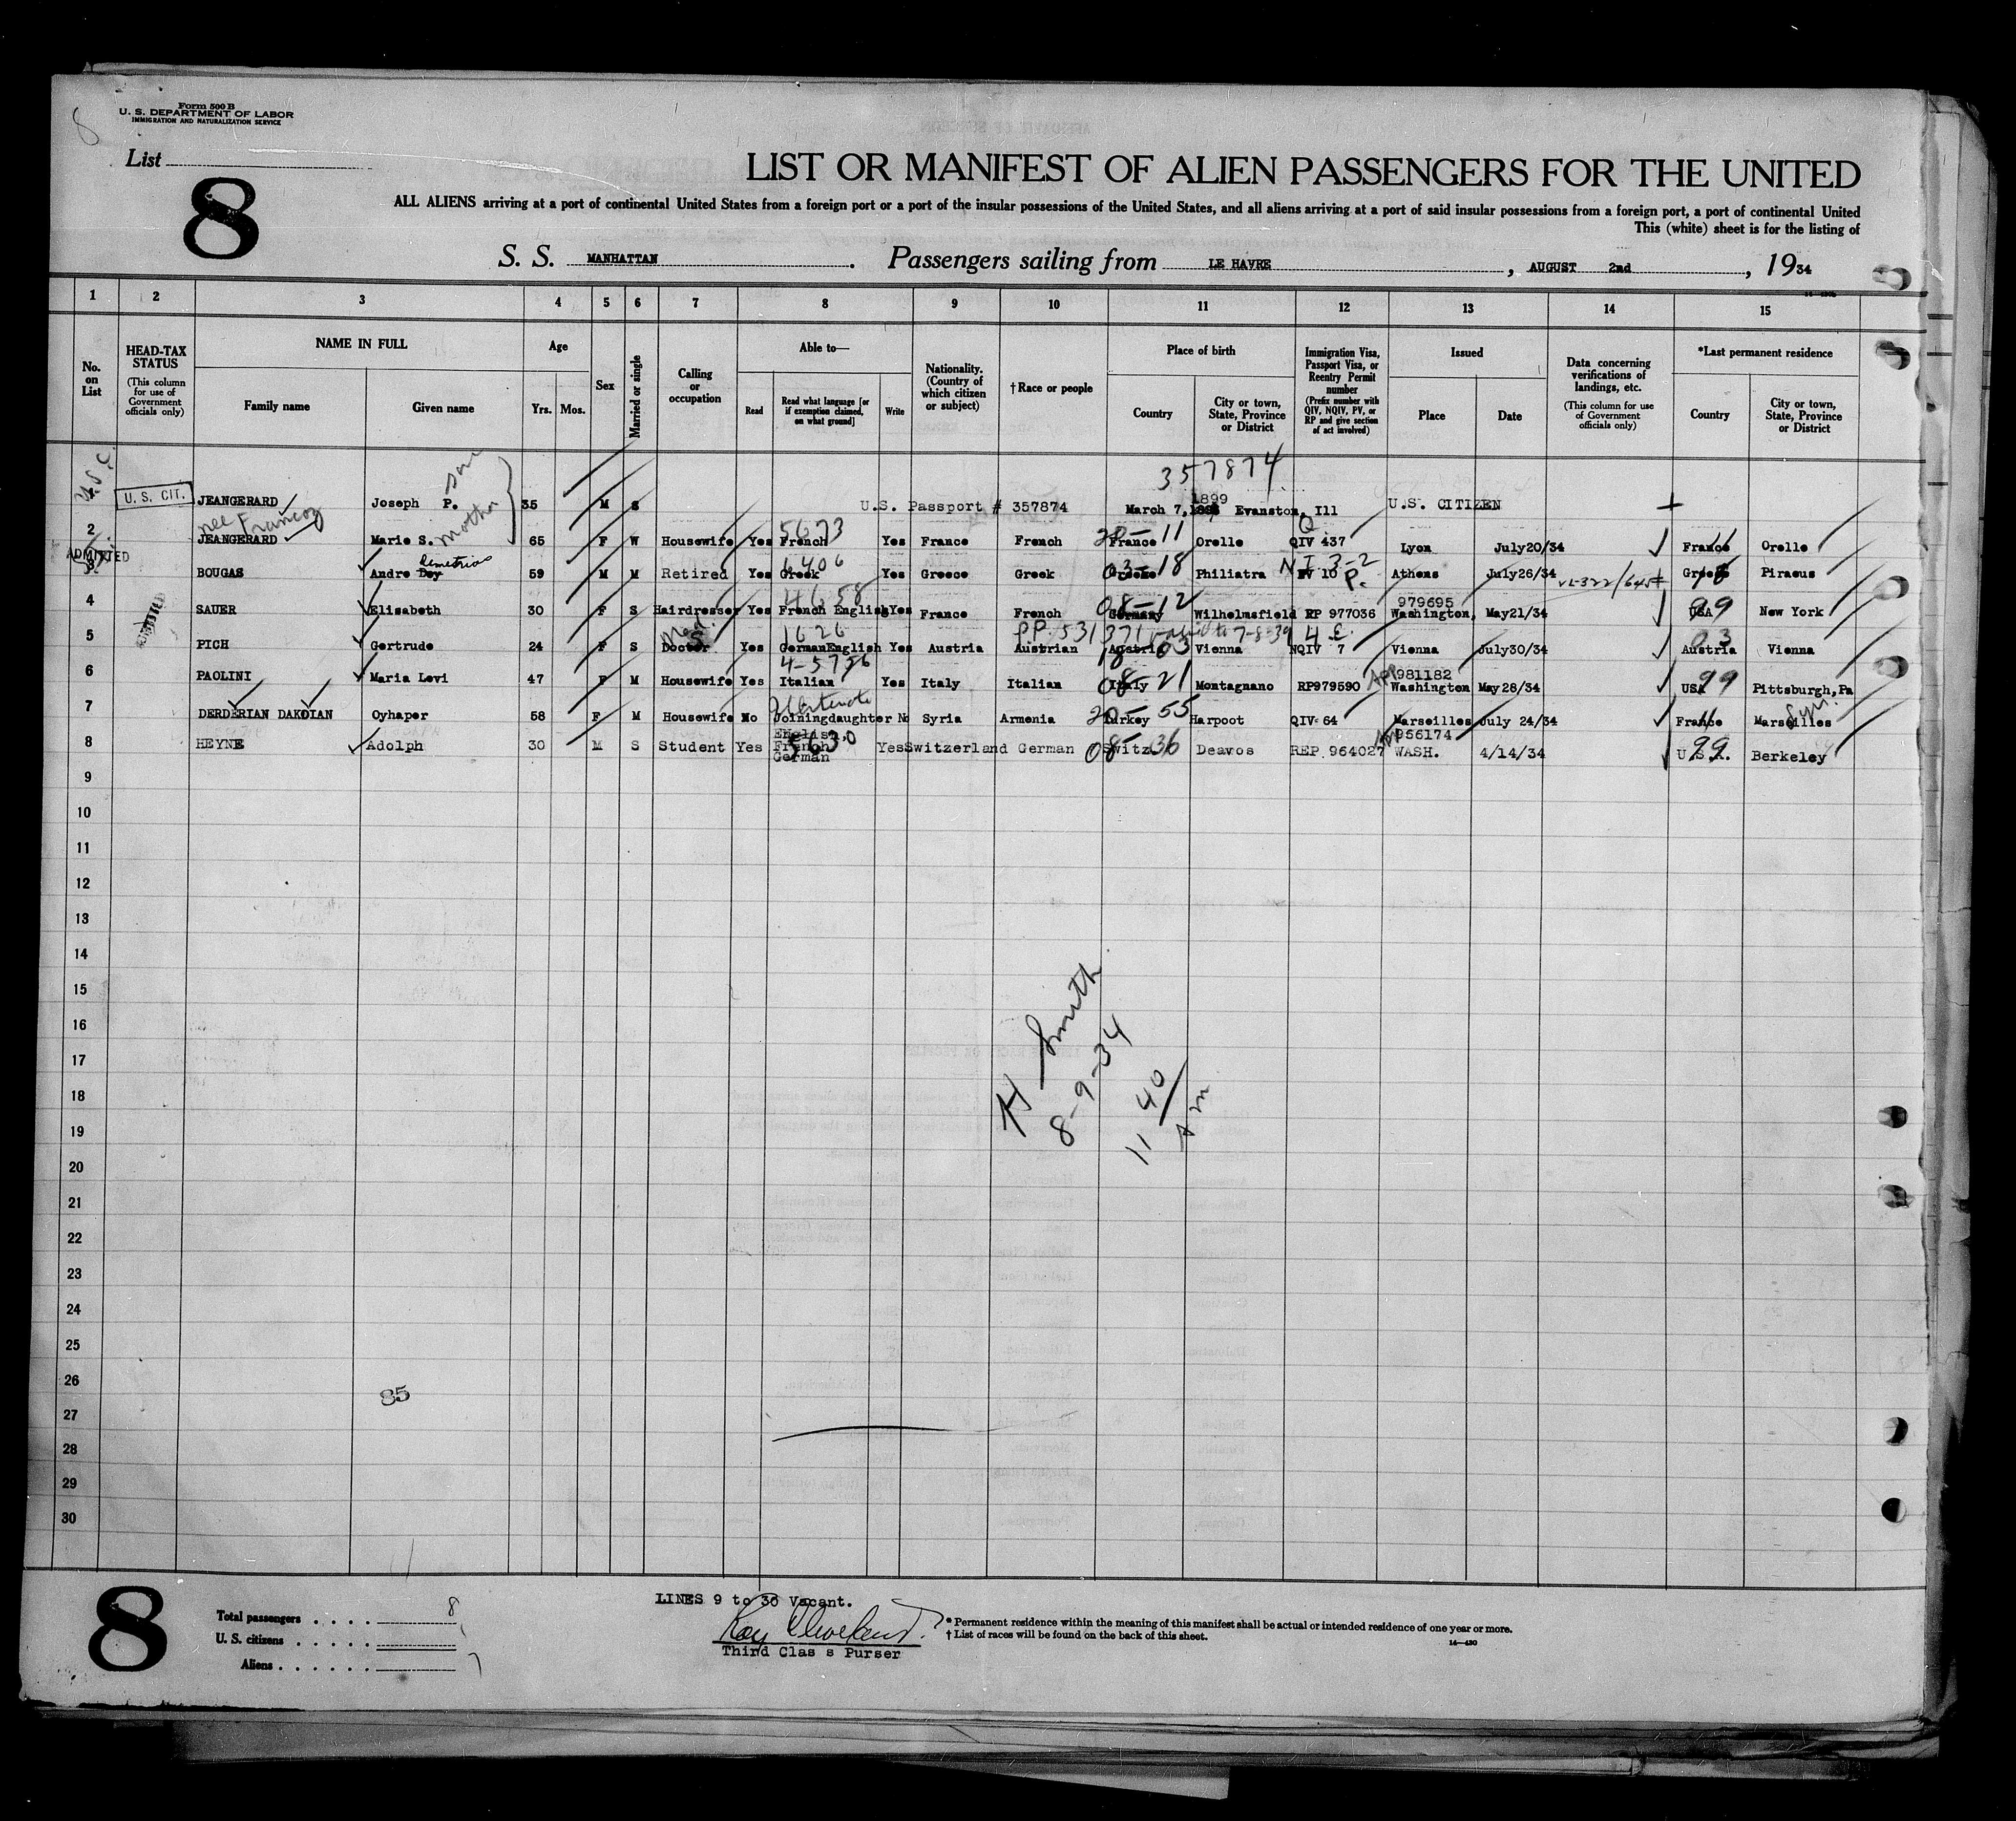 8
Form 500 B
U. S. DEPARTMENT OF LABOR
IMMIGRATION AND NATURALIZATION SERVICE
List
8
LIST OR MANIFEST OF ALIEN PASSENGERS FOR THE UNITED
ALL ALIENS arriving at a port of continental United States from a foreign port or a port of the insular possessions of the United States, and all aliens arriving at a port of said insular possessions from a foreign port, a port of continental United
This (white) sheet is for the listing of
S. S. MANHATTAN. Passengers sailing from LE HAVRE, AUGUST 2nd, 1934
1 2 3 4 5 6 7 8 9 10 11 12 13 14 15
No. on List
HEAD-TAX STATUS
(This column for use of Government officials only)
NAME IN FULL
Family name
Given name
Age
Yrs. Mos.
Sex
Married or single
Calling or occupation
Able to—
Read
Read what language [or if exemption claimed, on what ground]
Write
Nationality. (Country of which citizen or subject)
†Race or people
Place of birth
Country
City or town, State, Province or District
Immigration Visa, Passport Visa, or Reentry Permit number
(Prefix number with QIV, NQIV, PV, or RP and give section of act involved)
Issued
Place
Date
Data concerning verifications of landings, etc.
(This column for use of Government officials only)
*Last permanent residence
Country
City or town, State, Province or District
357874
U.S.C. U. S. CIT. JEANGERARD Joseph P. son 35 M S U.S. Passport # 357874 March 7, 1899 Evanston, Ill U.S. CITIZEN
nee Francoz mother 5673 20-11 Q
2 JEANGERARD Marie S. 65 F W Housewife Yes French Yes France French France Orelle QIV 437 Lyon July20/34 France Orelle
ADMITTED Demetrios 6406 03-18 N I 3-2
3 BOUGAS Andre Dey 59 M M Retired Yes Greek Yes Greece Greek Greece Philiatra PV 10 P. Athens July26/34 Greece Piraeus
4658 08-12 979695
4 SAUER Elisabeth 30 F S Hairdresser Yes French English Yes France French Germany Wilhelmsfield RP 977036 Washington, May21/34 USA 99 New York
Med. 1626 P.P. 531371 7-8-39 4 E.
5 PICH Gertrude 24 F S Doctor Yes German English Yes Austria Austrian Austria 03 Vienna NQIV 7 Vienna July30/34 Austria 03 Vienna
4-5756 08-21 981182
6 PAOLINI Maria Levi 47 F M Housewife Yes Italian Yes Italy Italian Italy Montagnano RP979590 Washington May28/34 USA 99 Pittsburgh, Pa
Illiterate 20-55 Syri.
7 DERDERIAN DAKOIAN Oyhaper 58 F M Housewife No Joining daughter No Syria Armenia Turkey Harpoot QIV-64 Marseilles July 24/34 France 11 Marseilles
5630 08-36 956174
8 HEYNE Adolph 30 M S Student Yes English French German Yes Switzerland German Switz Deavos REP. 964027 WASH. 4/14/34 U.S.A. 99 Berkeley
9
10
11
12
13
14
15
16
17
18
19
20
21
22
23
24
25
26
27
28
29
30
H Smith
8-9-34
11 40
A m
85
8
LINES 9 to 30 Vacant.
Total passengers . . . . 8
U. S. citizens . . . . . 1
Aliens . . . . . . 7
Ray Cleveland.
Third Clas s Purser
* Permanent residence within the meaning of this manifest shall be actual or intended residence of one year or more.
† List of races will be found on the back of this sheet.
14—430